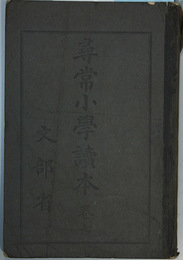 尋常小學讀本
文部省